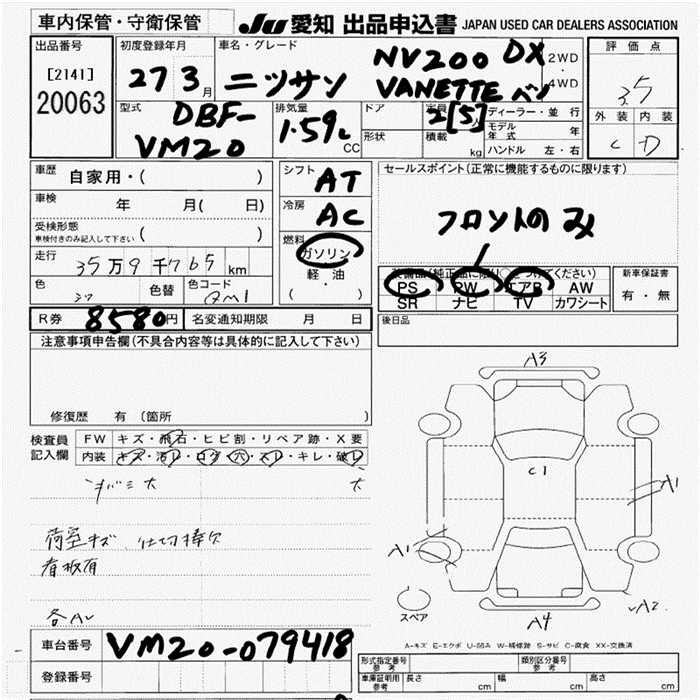 車内保管・守衛保管
JU 愛知 出品申込書 JAPAN USED CAR DEALERS ASSOCIATION
出品番号
[2141]
20063
初度登録年月
27 3月
車名・グレード
ニッサン
NV200 DX
VANETTE バン
2WD
4WD
評価点
3.5
外装 内装
C D
型式
DBF-
VM20
排気量
1.59L
CC
ドア
形状
定員
2[5]
積載
kg
ディーラー・並行
モデル年式 年
ハンドル 左・右
車歴
自家用・( )
車検
年 月( 日)
受検形態
車検付きのみ記入して下さい ( )
走行
35万9千765km
色
色替
色コード
シフト
AT
冷房
AC
燃料
ガソリン
軽・油
( ・ )
セールスポイント(正常に機能するものに限ります)
フロントのみ
装備品(純正品に限り○をつけてください)
PS PW エアB AW
SR ナビ TV カワシート
新車保証書
有・無
R券 8580円
名変通知期限 月 日
後日品
注意事項申告欄(不具合内容等は具体的に記入して下さい)
修復歴 有(箇所
検査員
記入欄
FW キズ・飛石・ヒビ割・リペア跡・X要
内装 キズ・汚レ・コゲ・穴・スレ・キレ・破レ
大
荷室キズ、仕切棒欠
看板有
各AU
A3
C1
A1
A1
A2
A4
スペア
A-キズ E-エクボ U-凹み W-補修跡 S-サビ C-腐食 XX-交換済
車台番号
VM20-079418
登録番号
形式指定番号
参考
類別区分番号
参考
車庫証明用
参考
長さ cm
幅 cm
高さ cm